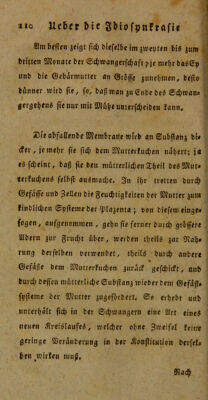 110 Ueber die Idiosynkrasie
Am besten zeigt sich dieselbe im zweyten bis zum
dritten Monate der Schwangerschaft; je mehr das Ey
und die Gebärmutter an Grösse zunehmen, desto
dünner wird sie, so, daß man zu Ende des Schwan-
gergehens sie nur mit Mühe unterscheiden kann.
Die abfallende Membrane wird an Substanz di-
cker, je mehr sie sich dem Mutterkuchen nähert; ja
es scheint, daß sie den mütterlichen Theil des Mut-
terkuchens selbst ausmache. In ihr treten durch
Gefässe und Zellen die Feuchtigkeiten der Mutter zum
kindlichen Systeme der Plazenta; von diesem einge-
sogen, aufgenommen, gehn sie ferner durch grössere
Adern zur Frucht über, werden theils zur Nah-
rung derselben verwendet, theils durch andere
Gefäße dem Mutterkuchen zurück geschickt, und
durch dessen mütterliche Substanz wieder dem Gefäß-
systeme der Mutter zugefördert. So erhebt und
unterhält sich in der Schwangern eine Art eines
neuen Kreislaufes, welcher ohne Zweifel keine
geringe Veränderung in der Konstitution dersel-
ben wirken muß.
Nach